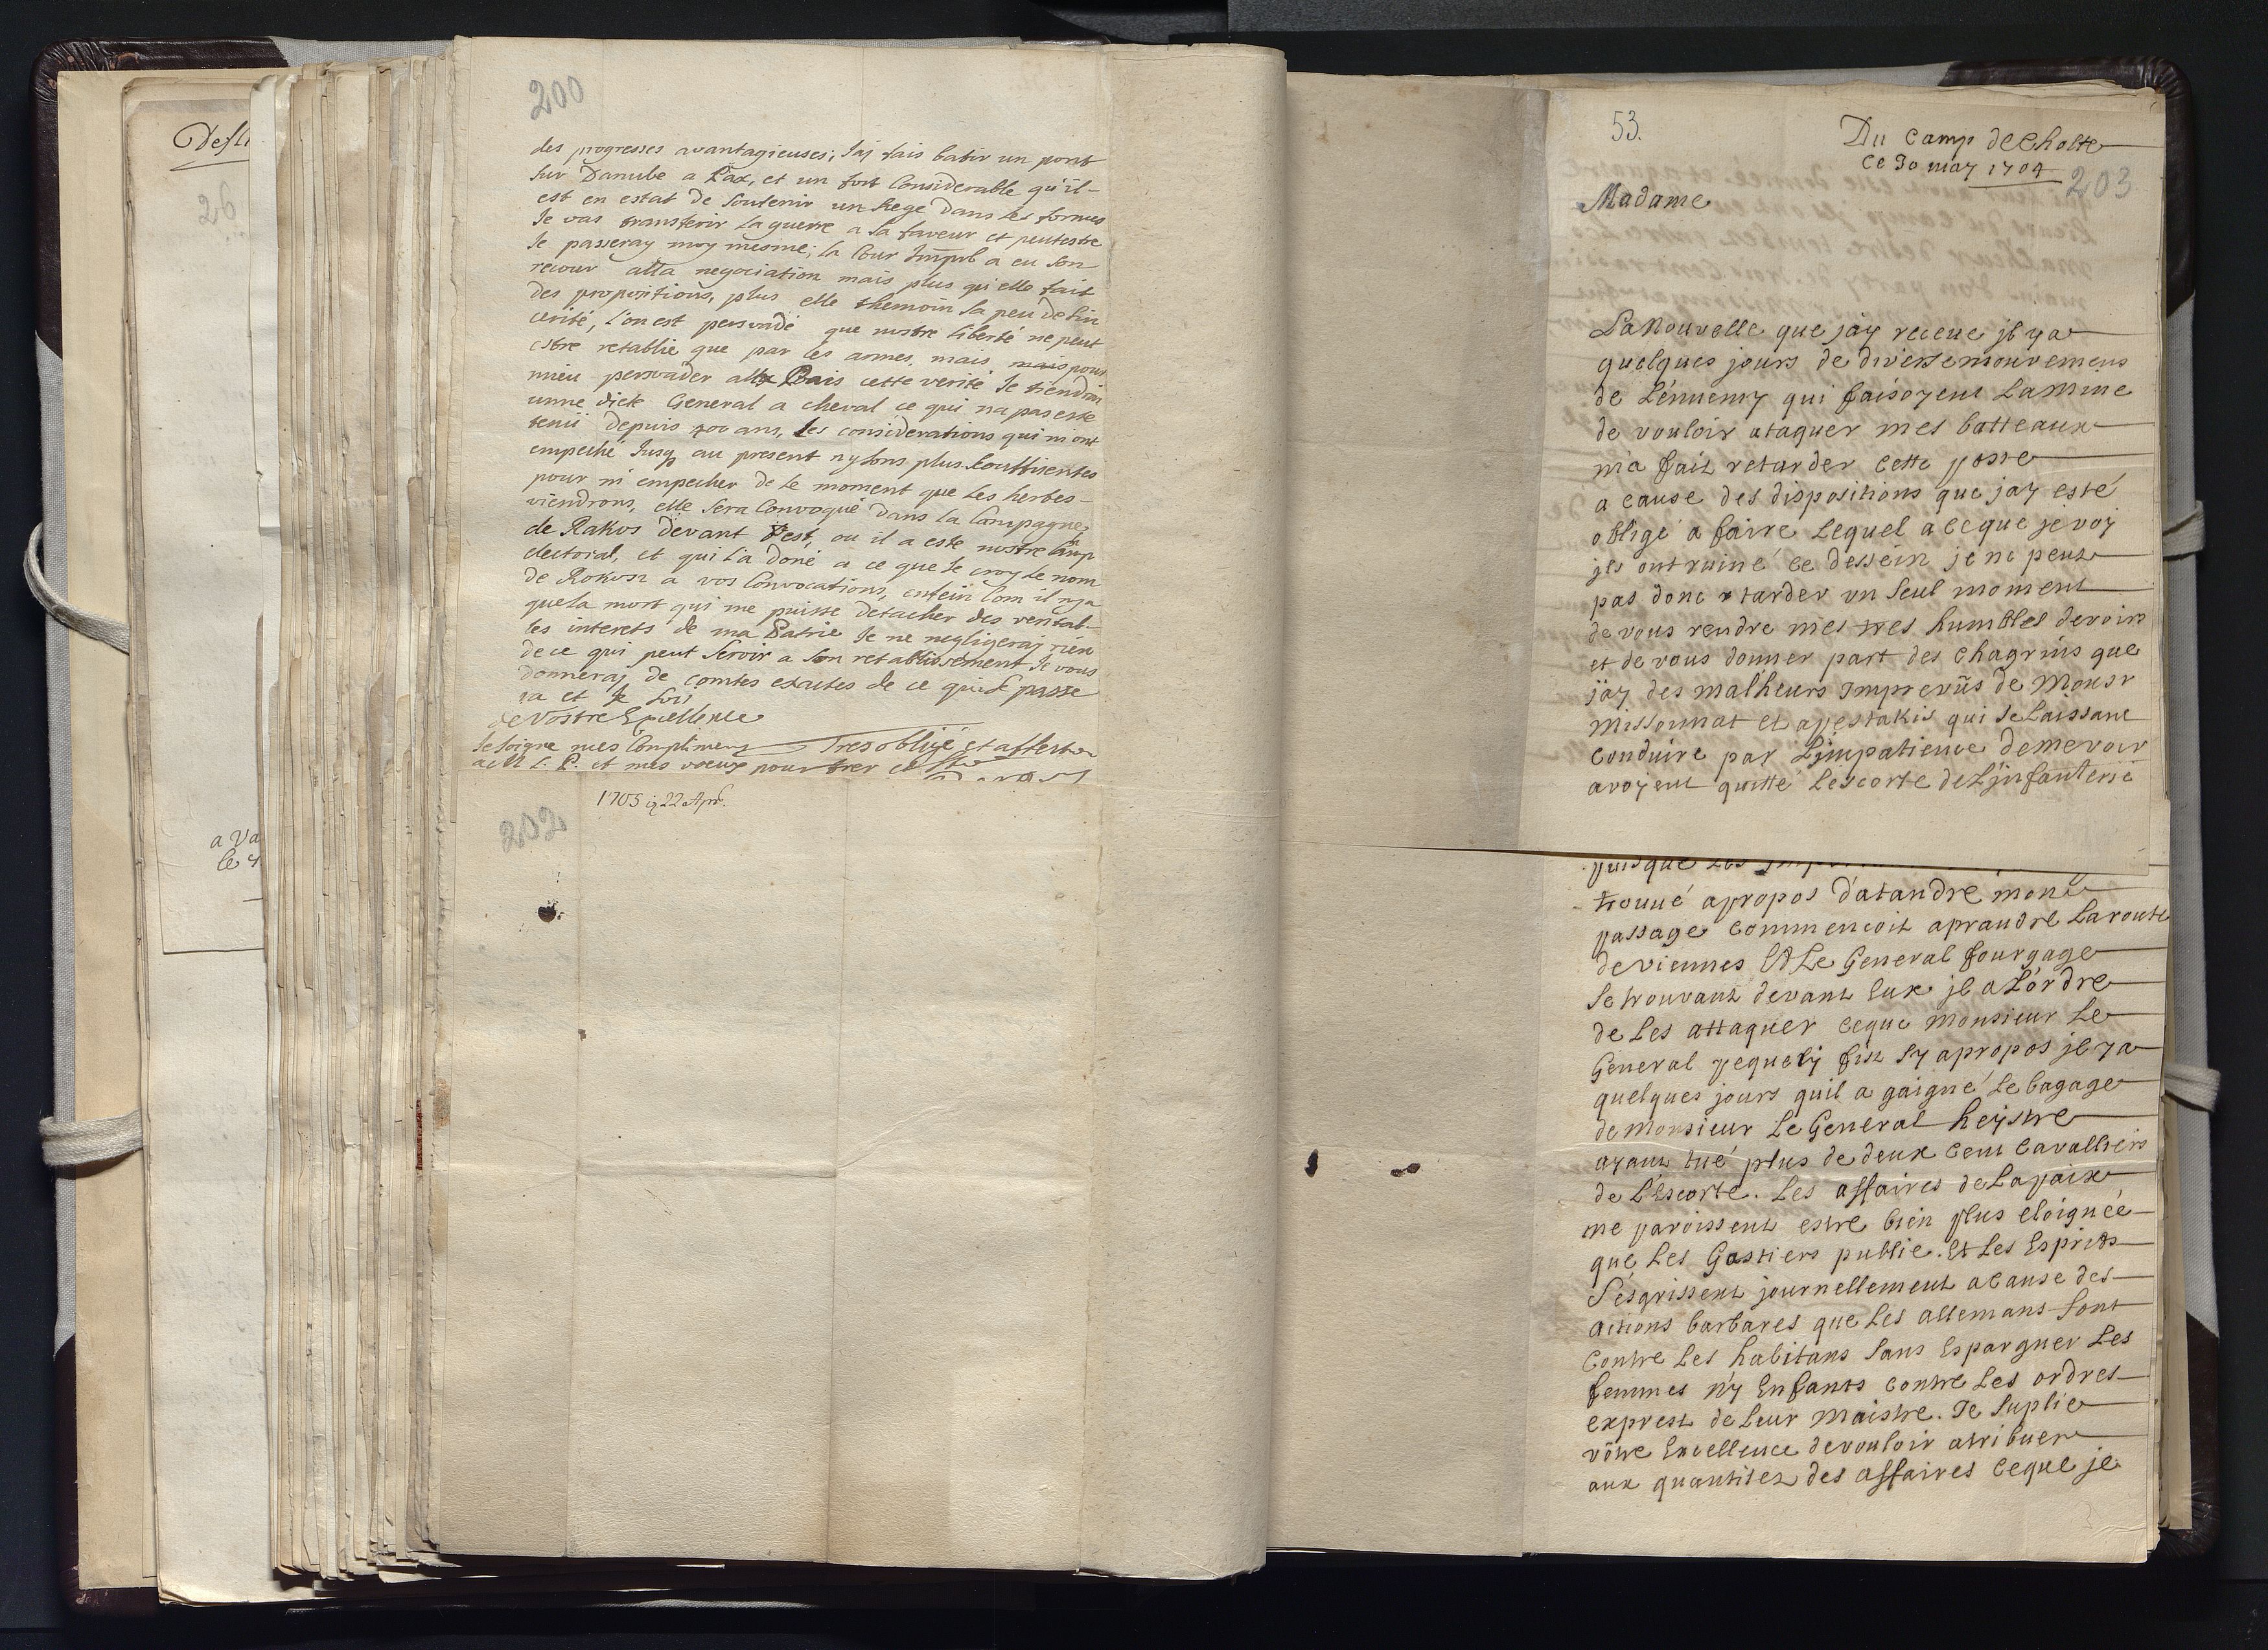 Desti
26
a Va
le 4
200
des progresses avantagieuses; Jaj fais batir un pont
sur Danube a Pax, et un fort Considerable qu'il
est en estat de soutenir un siege dans les formes
Je vas transferir la guerre a sa faveur et peutestre
Je passeray moy mesme; la Cour Imprl a eu son
recour alla negociation mais plus qu'elle fait
des propositions, plus elle themoin sa peu de sin
cerité, l'on est persuadé que nostre liberté ne peut
estre retablie que par les armes, mais mais pour
mieu persvader allx Pais cette verité Je tiendrai
unne diete General a cheval ce qui na pas este
tenü depuis 200 ans, les considerations qui m'ont
empeché Jusq au present ny sons plus souffisentes
pour m empecher de le moment que les herbes
viendrons, elle sera Convoquée dans la Campagne
de Rakos devant Pest, ou il a este nostre Camp
electoral, et qui l'a doné a ce que Je croy le nom
de Rokosz a vos Convocations, enfein Com il nya
que la mort qui me puisse detacher des veritab
les interets de ma Patrie Je ne negligeraj rien
de ce qui peut servir a son retablissement Je vous
donneraj de comtes exactes de ce qui se passe
ra et Je soi
de Vostre Excellence
Je soigne mes Complimens Tres obligé et affection
a M L. P. et mes voeux pour
1705 22 Apr.
202
53.
Du Camp de Cholte
Ce 30 may 1704
203
Madame
La Nouvelle que jay receue jl ya
quelques jours de diverse mouvemens
de Lénnemy qui faisoyent La Mine
de vouloir ataquer mes batteaux
m'a fait retarder cette poste
a cause des dispositions que jay esté
obligé a faire Lequel a ce que je voj
jls ont ruiné ce desséin je ne peux
pas donc tarder un seul moment
de vous rendre mes tres humbles devoirs
et de vous donner part des chagrins que
jäy des malheurs Imprevüs de Monsr
Missonnat et apestakis qui se Laissant
conduire par Ljmpatience de me voir
avoyent quitté Lescorte de Ljnfanterie
puisque Les
trouué apropos d'atandre mon
passage commencoit aprandre La route
de viennes Et Le General fourgage
se trouvant devant Eux jl a L'órdre
de Les attaquer ceque Monsieur Le
General pequely fist sy apropos jl ya
quelques jours quil a gaigné Le bagage
de Monsieur Le General heystre
ayant tué plus de deux Cent Cavalliers
de L'Escorte. Les affaires de La paix
me paroissent estre bien plus eloignée
que Les Gastiers publie. Et Les Esprits
S'esgrissent journellement acause des
actions barbares que Les allemans font
Contre Les habitans sans Espargner Les
femmes n'y Enfants contre Les ordres
exprest de Leur Maistre. Je suplie
vôtre Excellence de vouloir atribuer
aux quantitez des affaires ceque je